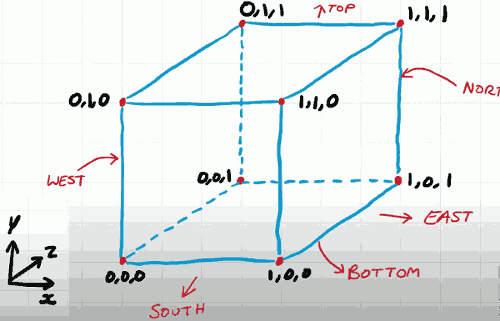 0,1,1
TOP
1,1,1
0,1,0
1,1,0
NORT
WEST
0,0,1
1,0,1
EAST
y
z
x
0,0,0
1,0,0
BOTTOM
SOUTH